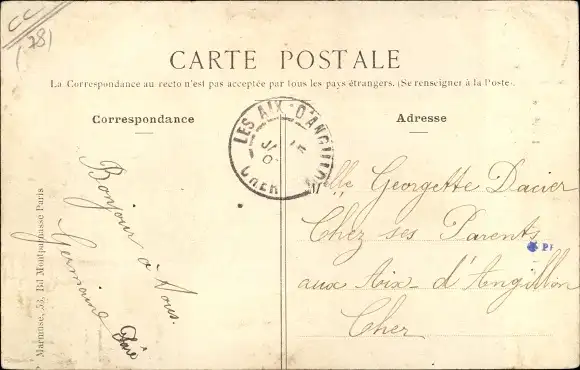 CC
(18)
CARTE POSTALE
La Correspondance au recto n'est pas acceptée par tous les pays étrangers. (Se renseigner à la Poste).
Correspondance
Adresse
LES AIX-D'ANGILLON
CHER
Mlle Georgette Dacier
Chez ses Parents
aux Aix-d'Angillon
Cher
Bonjour à Vous.
Germaine
Marmuse, 53, Bd Montparnasse Paris